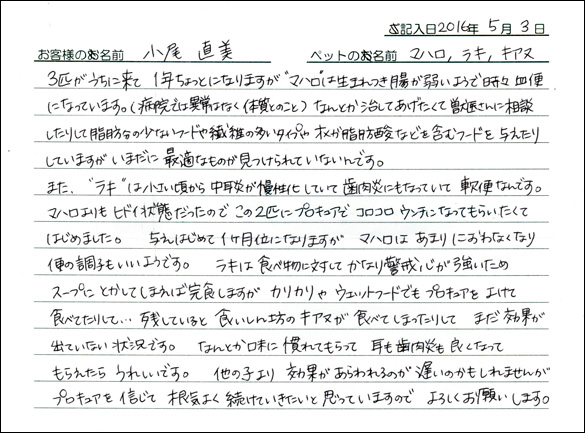 ご記入日2016年 5月 3日
お客様のお名前 小尾 直美 ペットのお名前 マハロ, ラキ, キアヌ
3匹がうちに来て 1年ちょっとになりますが"マハロ"は生まれつき腸が弱いようで時々血便
になっています。(病院では異常はなく体質とのこと) なんとか治してあげたくて獣医さんに相談
したりして脂肪分の少ないフードや繊維の多いタイプやオメガ脂肪酸などを含むフードを与えたり
していますがいまだに最適なものが見つけられていないんです。
また、"ラキ"は小さい頃から中耳炎が慢性化していて歯肉炎にもなっていて軟便なんです。
マハロよりもヒドイ状態だったのでこの2匹にプロキュアでコロコロウンチになってもらいたくて
はじめました。 与えはじめて1ヶ月位になりますが マハロは あまりにおわなくなり
便の調子もいいようです。 ラキは食べ物に対してかなり警戒心が強いため
スープにとかしてしまえば完食しますが カリカリや ウェットフードでもプロキュアをよけて
食べてたりして… 残していると 食いしん坊のキアヌが食べてしまったりして まだ効果が
出ていない状況です。 なんとか味に慣れてもらって 耳も歯肉炎も良くなって
もらえたら うれしいです。 他の子より 効果があらわれるのが遅いのかもしれませんが
プロキュアを信じて 根気よく続けていきたいと思っていますので よろしくお願いします。